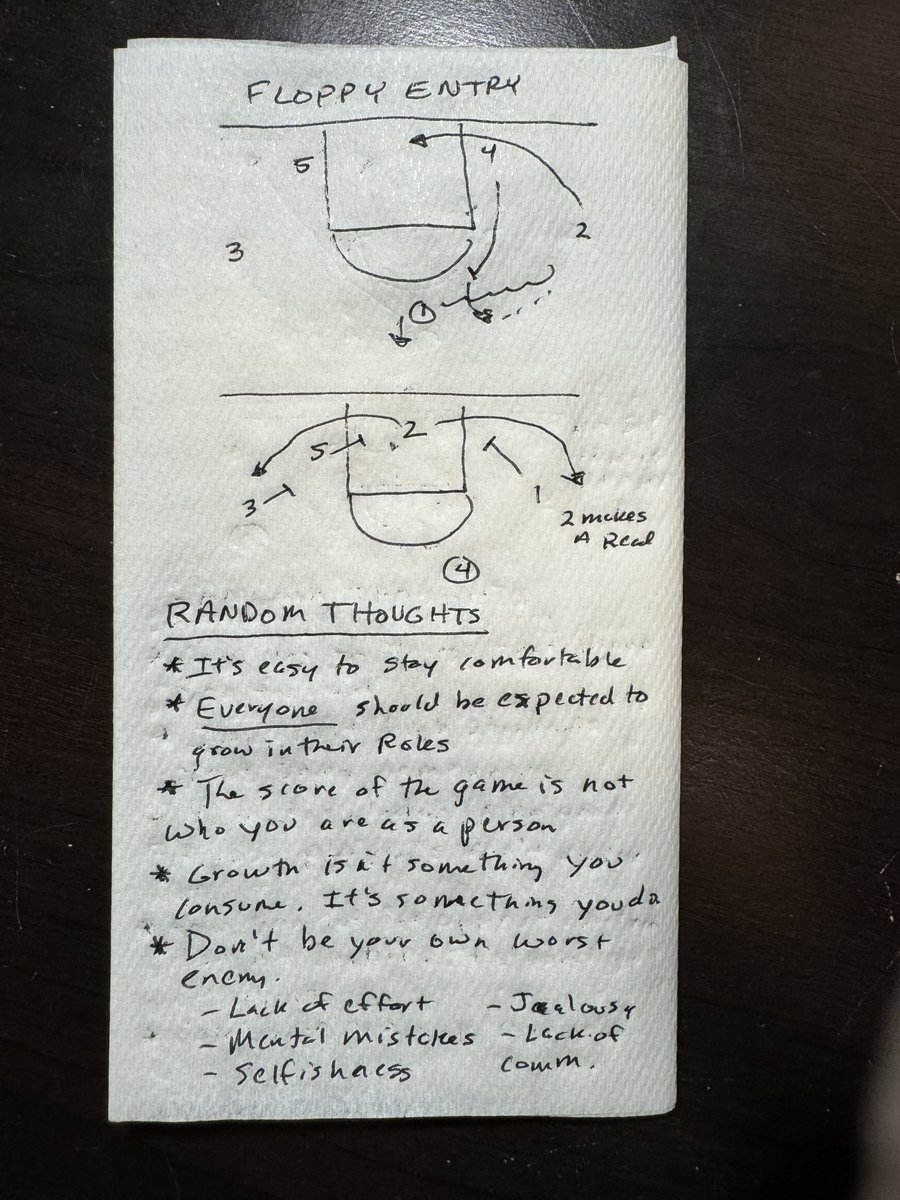 FLOPPY ENTRY
5
4
3
2
1
2
5
3
1
2 makes
A Read
4
RANDOM THOUGHTS
* It's easy to stay comfortable
* Everyone should be expected to
grow in their Roles
* The score of the game is not
who you are as a person
* Growth isn't something you
consume. It's something you do
* Don't be your own worst
enemy.
- Lack of effort - Jealousy
- Mental mistakes - Lack of
- Selfishness comm.